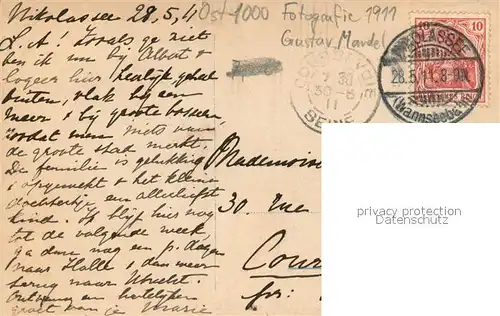 Nikolassee 28.5.11
L.A! Zooals ge ziet
ben ik nu bij Albert &
logeer hier heerlijk geheel
buiten, vlak bij een
meer & bij groote bosschen,
zoodat men niets van
de groote stad merkt.
De familie is gelukkig
& opgewekt & het kleine
dochtertje een allerliefst
kind. Ik blijf hier nog
tot de volgende week,
ga dan nog een p. dagen
naar Halle & dan weer
terug naar Utrecht.
Ontvang een hartelijken
groet van je Marie
Ost-1000 Fotografie 1911
Gustav Mandel
10
NIKOLASSEE
28.5.11. 8-9N.
(Wannseebahn)
7 30
30-5
11
SEINE
Mademoise
30. Rue
Cour
pr:
privacy protection
Datenschutz